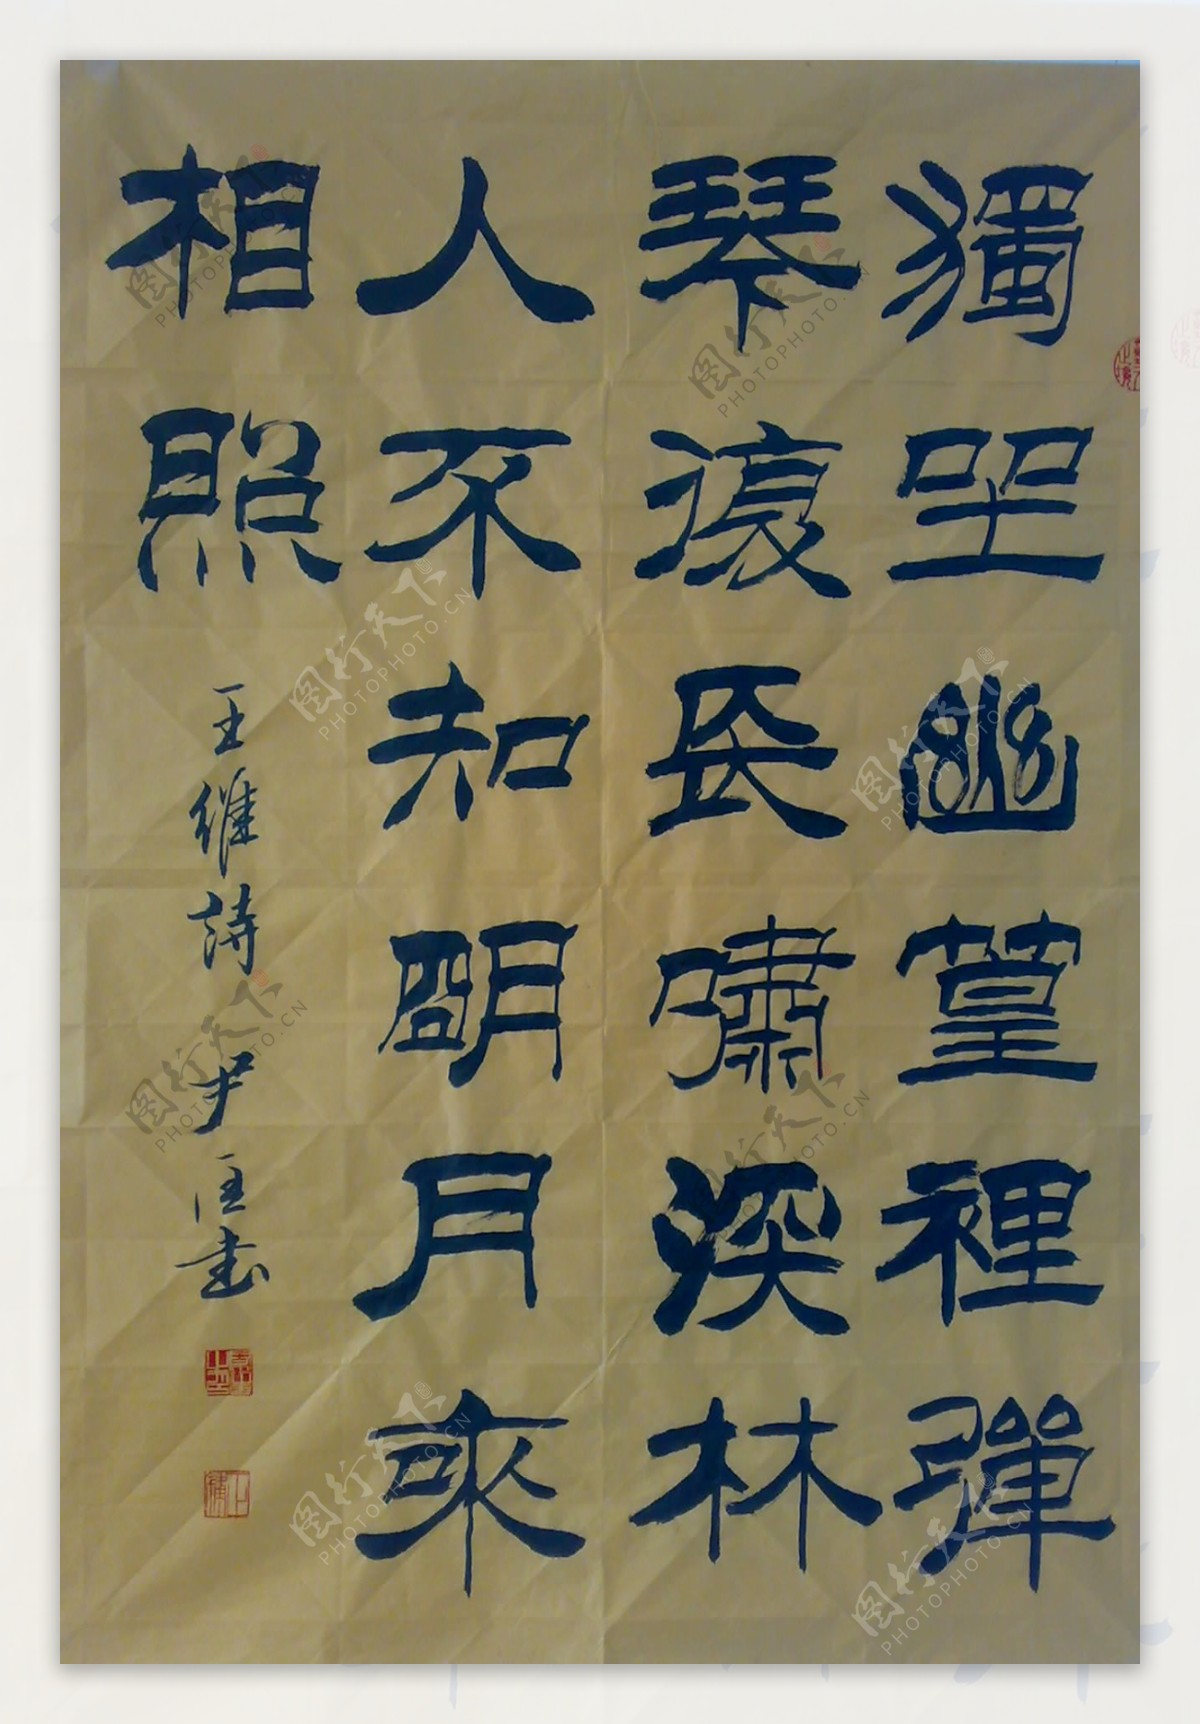 獨坐幽篁裡彈
琴復長嘯深林
人不知明月來
相照
王維詩尹书
图行天下
PHOTOPHOTO.CN